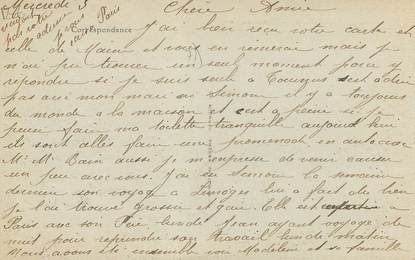 Mercredi 3
Chère Amie
Correspondance
J'ai bien reçu votre carte et
celle de et vous en remercie mais je
n'ai pu trouver un seul moment pour y
répondre si je suis seule à c'est à dire
pas avec mon mari ou Simone il y a toujours
du monde à la maison et c'est à peine si je
peux faire ma toilette tranquille aujourd'hui
ils sont allés faire une promenade en autocar
Mr Mme aussi je m'empresse de venir causer
un peu avec vous. J'ai eu Simone la semaine
dernière son voyage à Limoges lui a fait du bien
je l'ai trouvé grossie et gaie. Elle est à
Paris avec son Père, lundi Jean ayant voyagé de
nuit pour reprendre son travail lundi matin
nous avons été ensemble voir Madeleine et sa famille